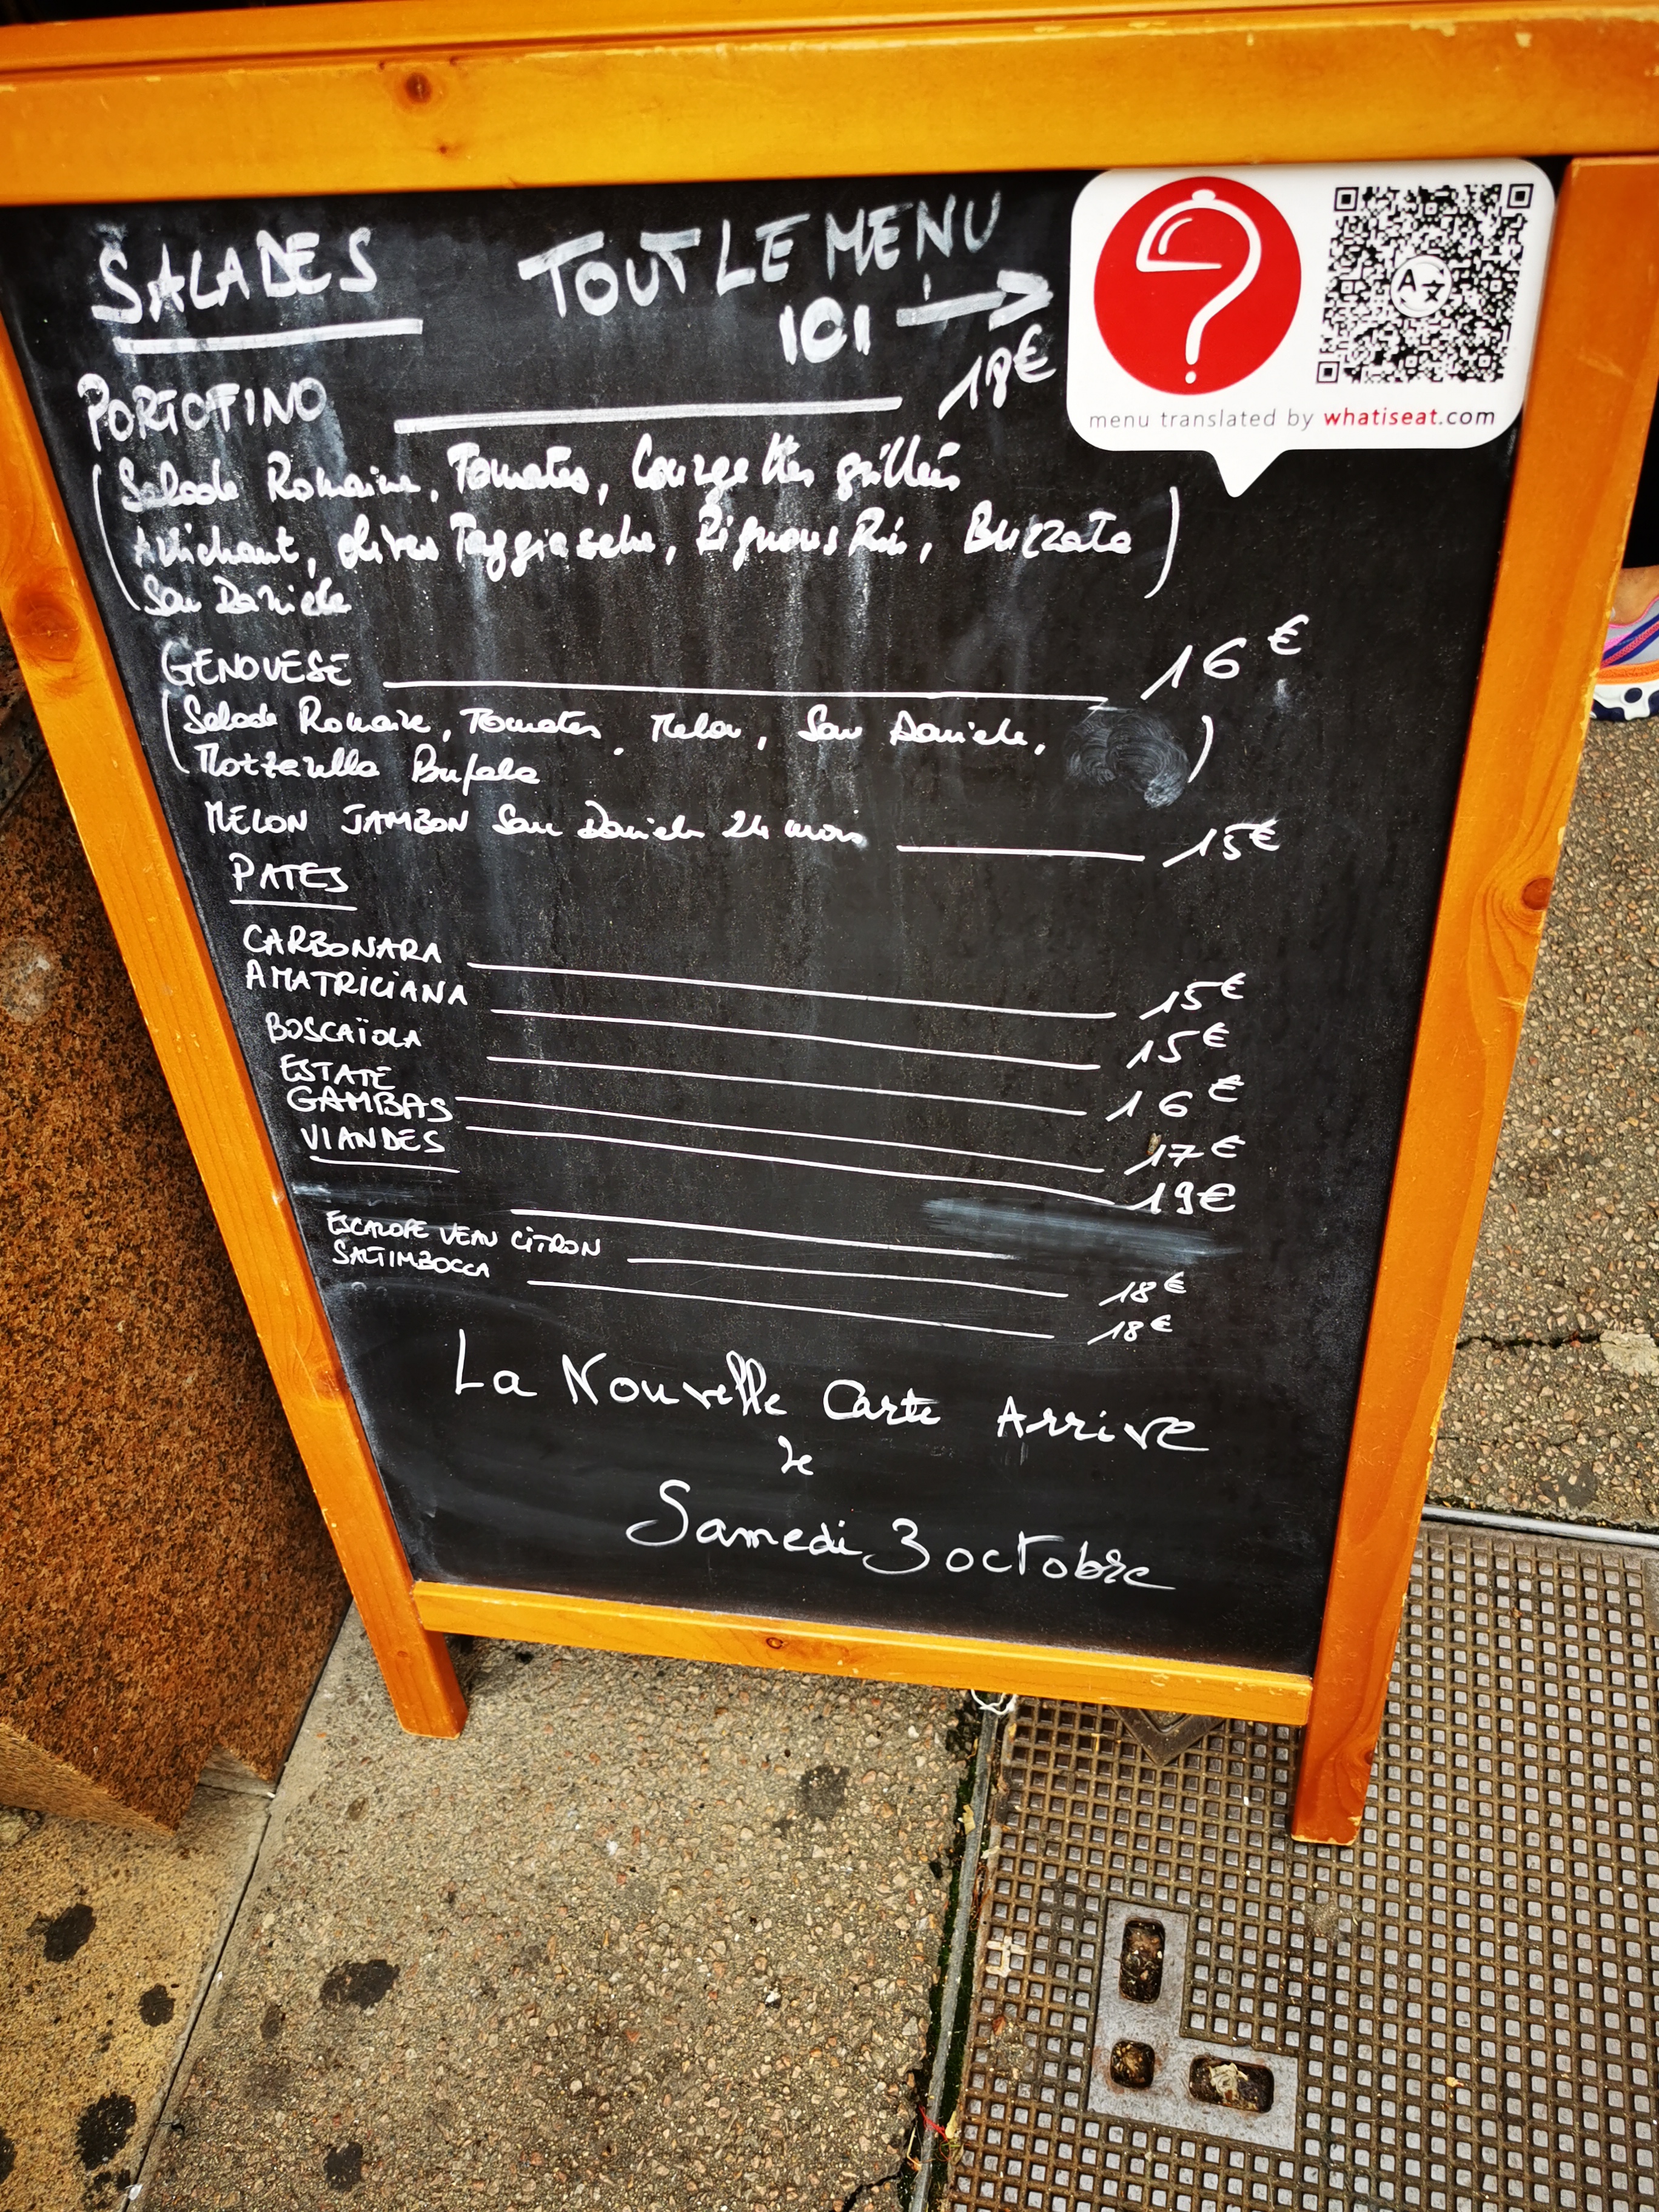 SALADES
TOUT LE MENU
ICI →
menu translated by whatiseat.com
PORTOFINO 18€
(Salade Romaine, Tomates, Courgettes grillées
Artichaut, olives Taggiasche, Pignons Pin, Burrata
San Daniele)
GENOVESE 16€
(Salade Romaine, Tomates, Melon, San Daniele,
Mozzarella Bufala)
MELON JAMBON San Daniele 24 mois 15€
PATES
CARBONARA 15€
AMATRICIANA 15€
BOSCAÏOLA 16€
ESTATE 17€
GAMBAS 19€
VIANDES
ESCALOPE VEAU CITRON 18€
SALTIMBOCCA 18€
La Nouvelle Carte Arrive
le
Samedi 3 octobre